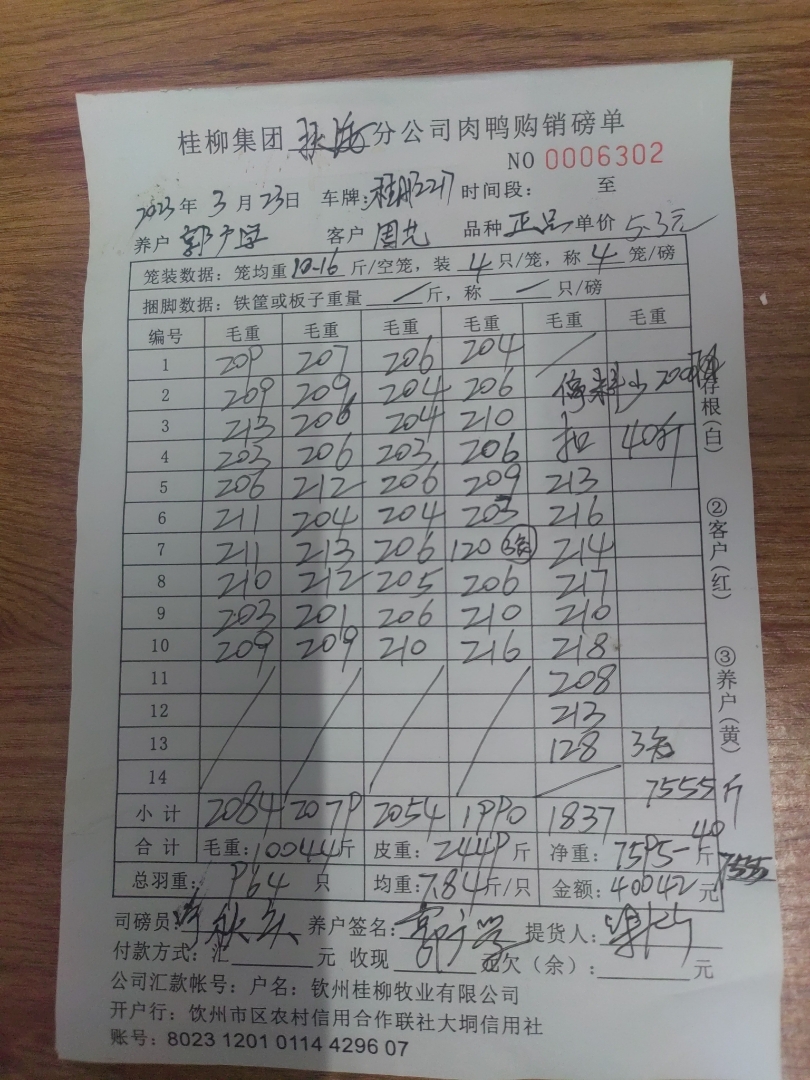 桂柳集团 分公司肉鸭购销磅单
NO 0006302
2023年 3月23日 车牌:桂 32217 时间段: 至
养户 郭广学 客户 周艺 品种 正品 单价 5.3元
笼装数据:笼均重 10.16 斤/空笼,装 4 只/笼,称 4 笼/磅
捆脚数据:铁筐或板子重量 / 斤,称 / 只/磅
编号 毛重 毛重 毛重 毛重 毛重 毛重
1 209 207 206 204 /
2 209 209 204 206 停料少200
3 213 206 204 210 扣 40斤
4 203 206 203 206
5 206 212 206 209 213
6 211 204 204 203 216
7 211 213 206 120 3笼 214
8 210 212 205 206 217
9 203 201 206 210 210
10 209 209 210 216 218
11 208
12 213
13 128 3笼
14 / 7555斤
小计 2084 2079 2054 1990 1837
40
合计 毛重:10044斤 皮重:2449斤 净重:7595-斤 7555
总羽重: 964 只 均重:7.84斤/只 金额:40042元
司磅员: 养户签名:郭广学 提货人:
付款方式:汇 元 收现 元欠(余): 元
公司汇款帐号:户名:钦州桂柳牧业有限公司
开户行:饮州市区农村信用合作联社大垌信用社
账号:8023 1201 0114 4296 07
存根(白)
②客户(红)
③养户(黄)